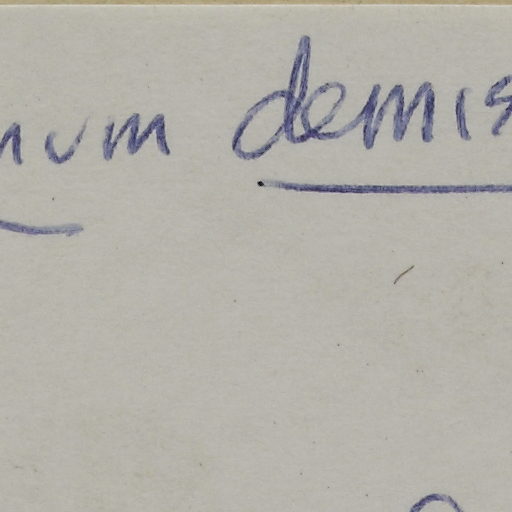 num demis